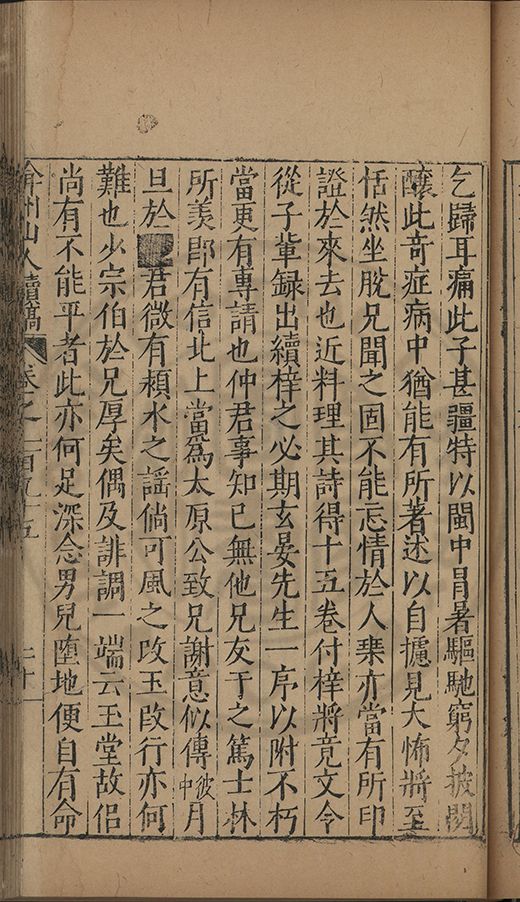 乞歸耳痛此子甚彊特以閩中冒暑驅馳窮夕披閱
釀此奇症病中猶能有所著述以自攄見大怖將至
恬然坐脫兄聞之固不能忘情於人桒亦當有所印
證於來去也近料理其詩得十五卷付梓將竟文令
從子輩録出續梓之必期玄晏先生一序以附不朽
當更有專請也仲君事知已無他兄友于之篤士林
所羨郎有信北上當爲太原公致兄謝意似傳彼中月
旦於君微有潁水之謡倘可風之改玉改行亦何
難也少宗伯於兄厚矣偶及誹調一端云玉堂故侣
尚有不能平者此亦何足深念男兒墮地便自有命
弇州山人續稿 卷之一百九十五 二十